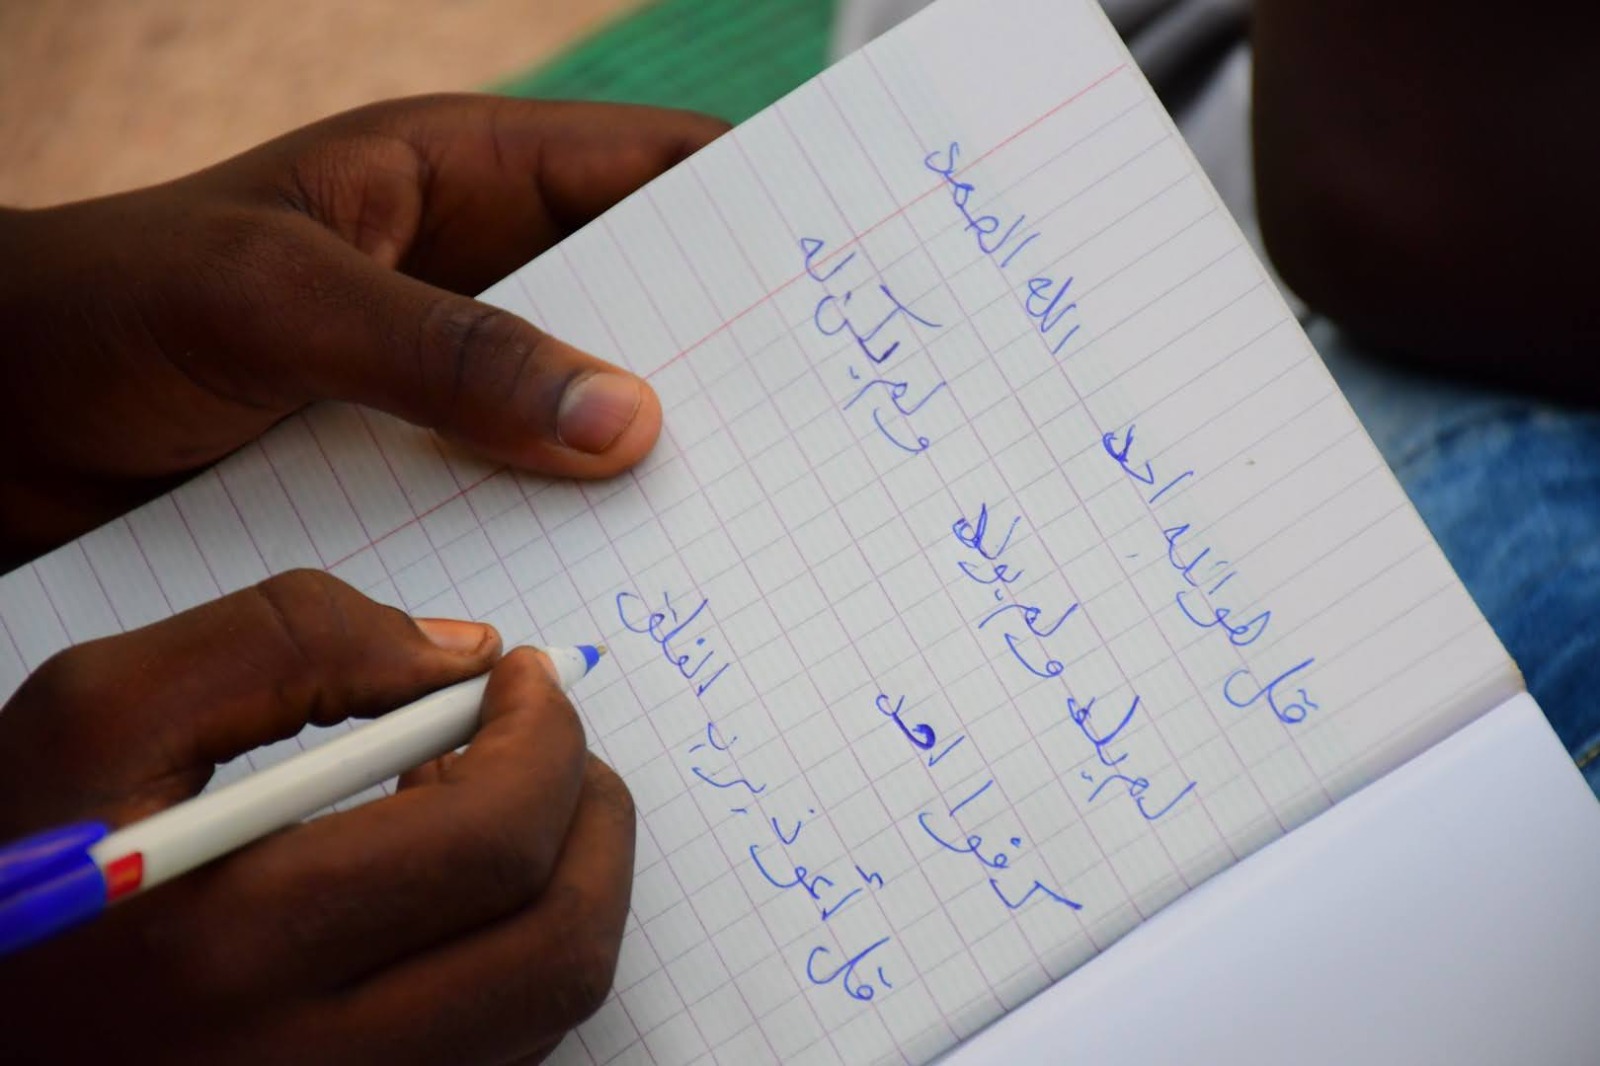 قل هو الله احد الله الصمد
لم يلد ولم يولد ولم يكن له
كفوا احد
قل أعوذ برب الفلق